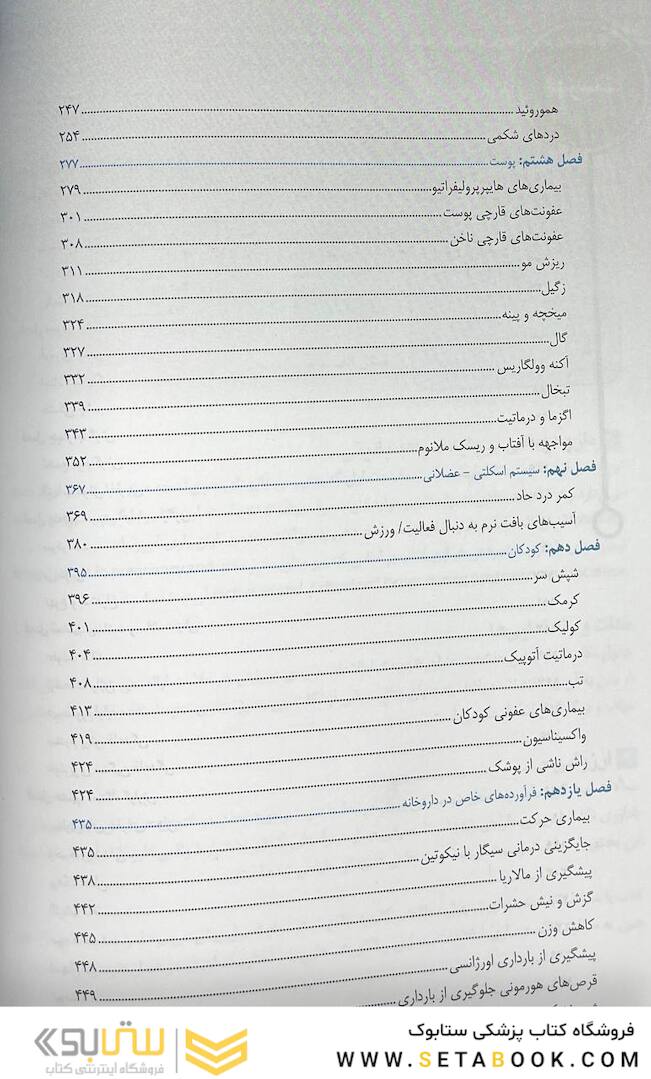 هموروئید ۲۴۷
دردهای شکمی ۲۵۴
فصل هشتم: پوست ۲۷۷
بیماری‌های هایپرپرولیفراتیو ۲۷۹
عفونت‌های قارچی پوست ۳۰۱
عفونت‌های قارچی ناخن ۳۰۸
ریزش مو ۳۱۱
زگیل ۳۱۸
میخچه و پینه ۳۲۴
گال ۳۲۷
آکنه وولگاریس ۳۳۲
تبخال ۳۳۹
اگزما و درماتیت ۳۴۳
مواجهه با آفتاب و ریسک ملانوم ۳۵۲
فصل نهم: سیستم اسکلتی – عضلانی ۳۶۷
کمر درد حاد ۳۶۹
آسیب‌های بافت نرم به دنبال فعالیت/ ورزش ۳۸۰
فصل دهم: کودکان ۳۹۵
شپش سر ۳۹۶
کرمک ۴۰۱
کولیک ۴۰۴
درماتیت آتوپیک ۴۰۸
تب ۴۱۳
بیماری‌های عفونی کودکان ۴۱۹
واکسیناسیون ۴۲۴
راش ناشی از پوشک ۴۲۴
فصل یازدهم: فرآورده‌های خاص در داروخانه ۴۳۵
بیماری حرکت ۴۳۵
جایگزینی درمانی سیگار با نیکوتین ۴۳۸
پیشگیری از مالاریا ۴۴۲
گزش و نیش حشرات ۴۴۵
کاهش وزن ۴۴۸
پیشگیری از بارداری اورژانسی ۴۴۹
قرص‌های هورمونی جلوگیری از بارداری
فروشگاه کتاب پزشکی ستابوک
WWW.SETABOOK.COM
ستابوک
فروشگاه اینترنتی کتاب